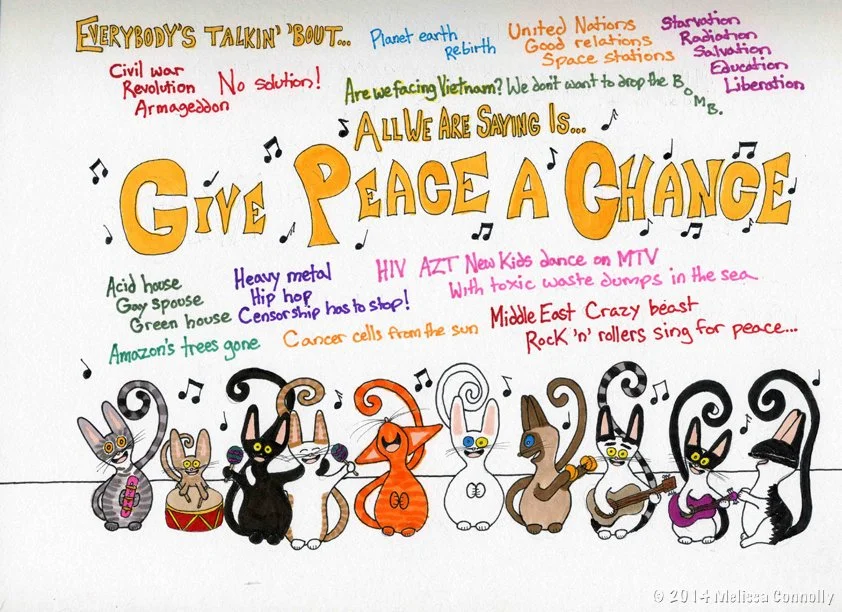 EVERYBODY'S TALKIN' 'BOUT...
Planet earth
Rebirth
United Nations
Good relations
Space stations
Starvation
Radiation
Salvation
Education
Liberation
Civil war
Revolution
Armageddon
No solution!
Are we facing Vietnam? We don't want to drop the BOMB.
ALL WE ARE SAYING IS...
GIVE PEACE A CHANCE
Acid house
Gay spouse
Green house
Amazon's trees gone
Heavy metal
Hip hop
Censorship has to stop!
Cancer cells from the sun
HIV AZT New Kids dance on MTV
With toxic waste dumps in the sea
Middle East Crazy beast
Rock 'n' rollers sing for peace...
© 2014 Melissa Connolly